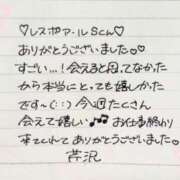 ♡レスポアールSくん♡
ありがとうございました。♡
すごい...!会えると思ってなかった
から本当に、とても嬉しかった
です〜(: :)今週たくさん
会えて嬉しい♪♪お仕事終わり
来てくれてありがとうございました
芹沢